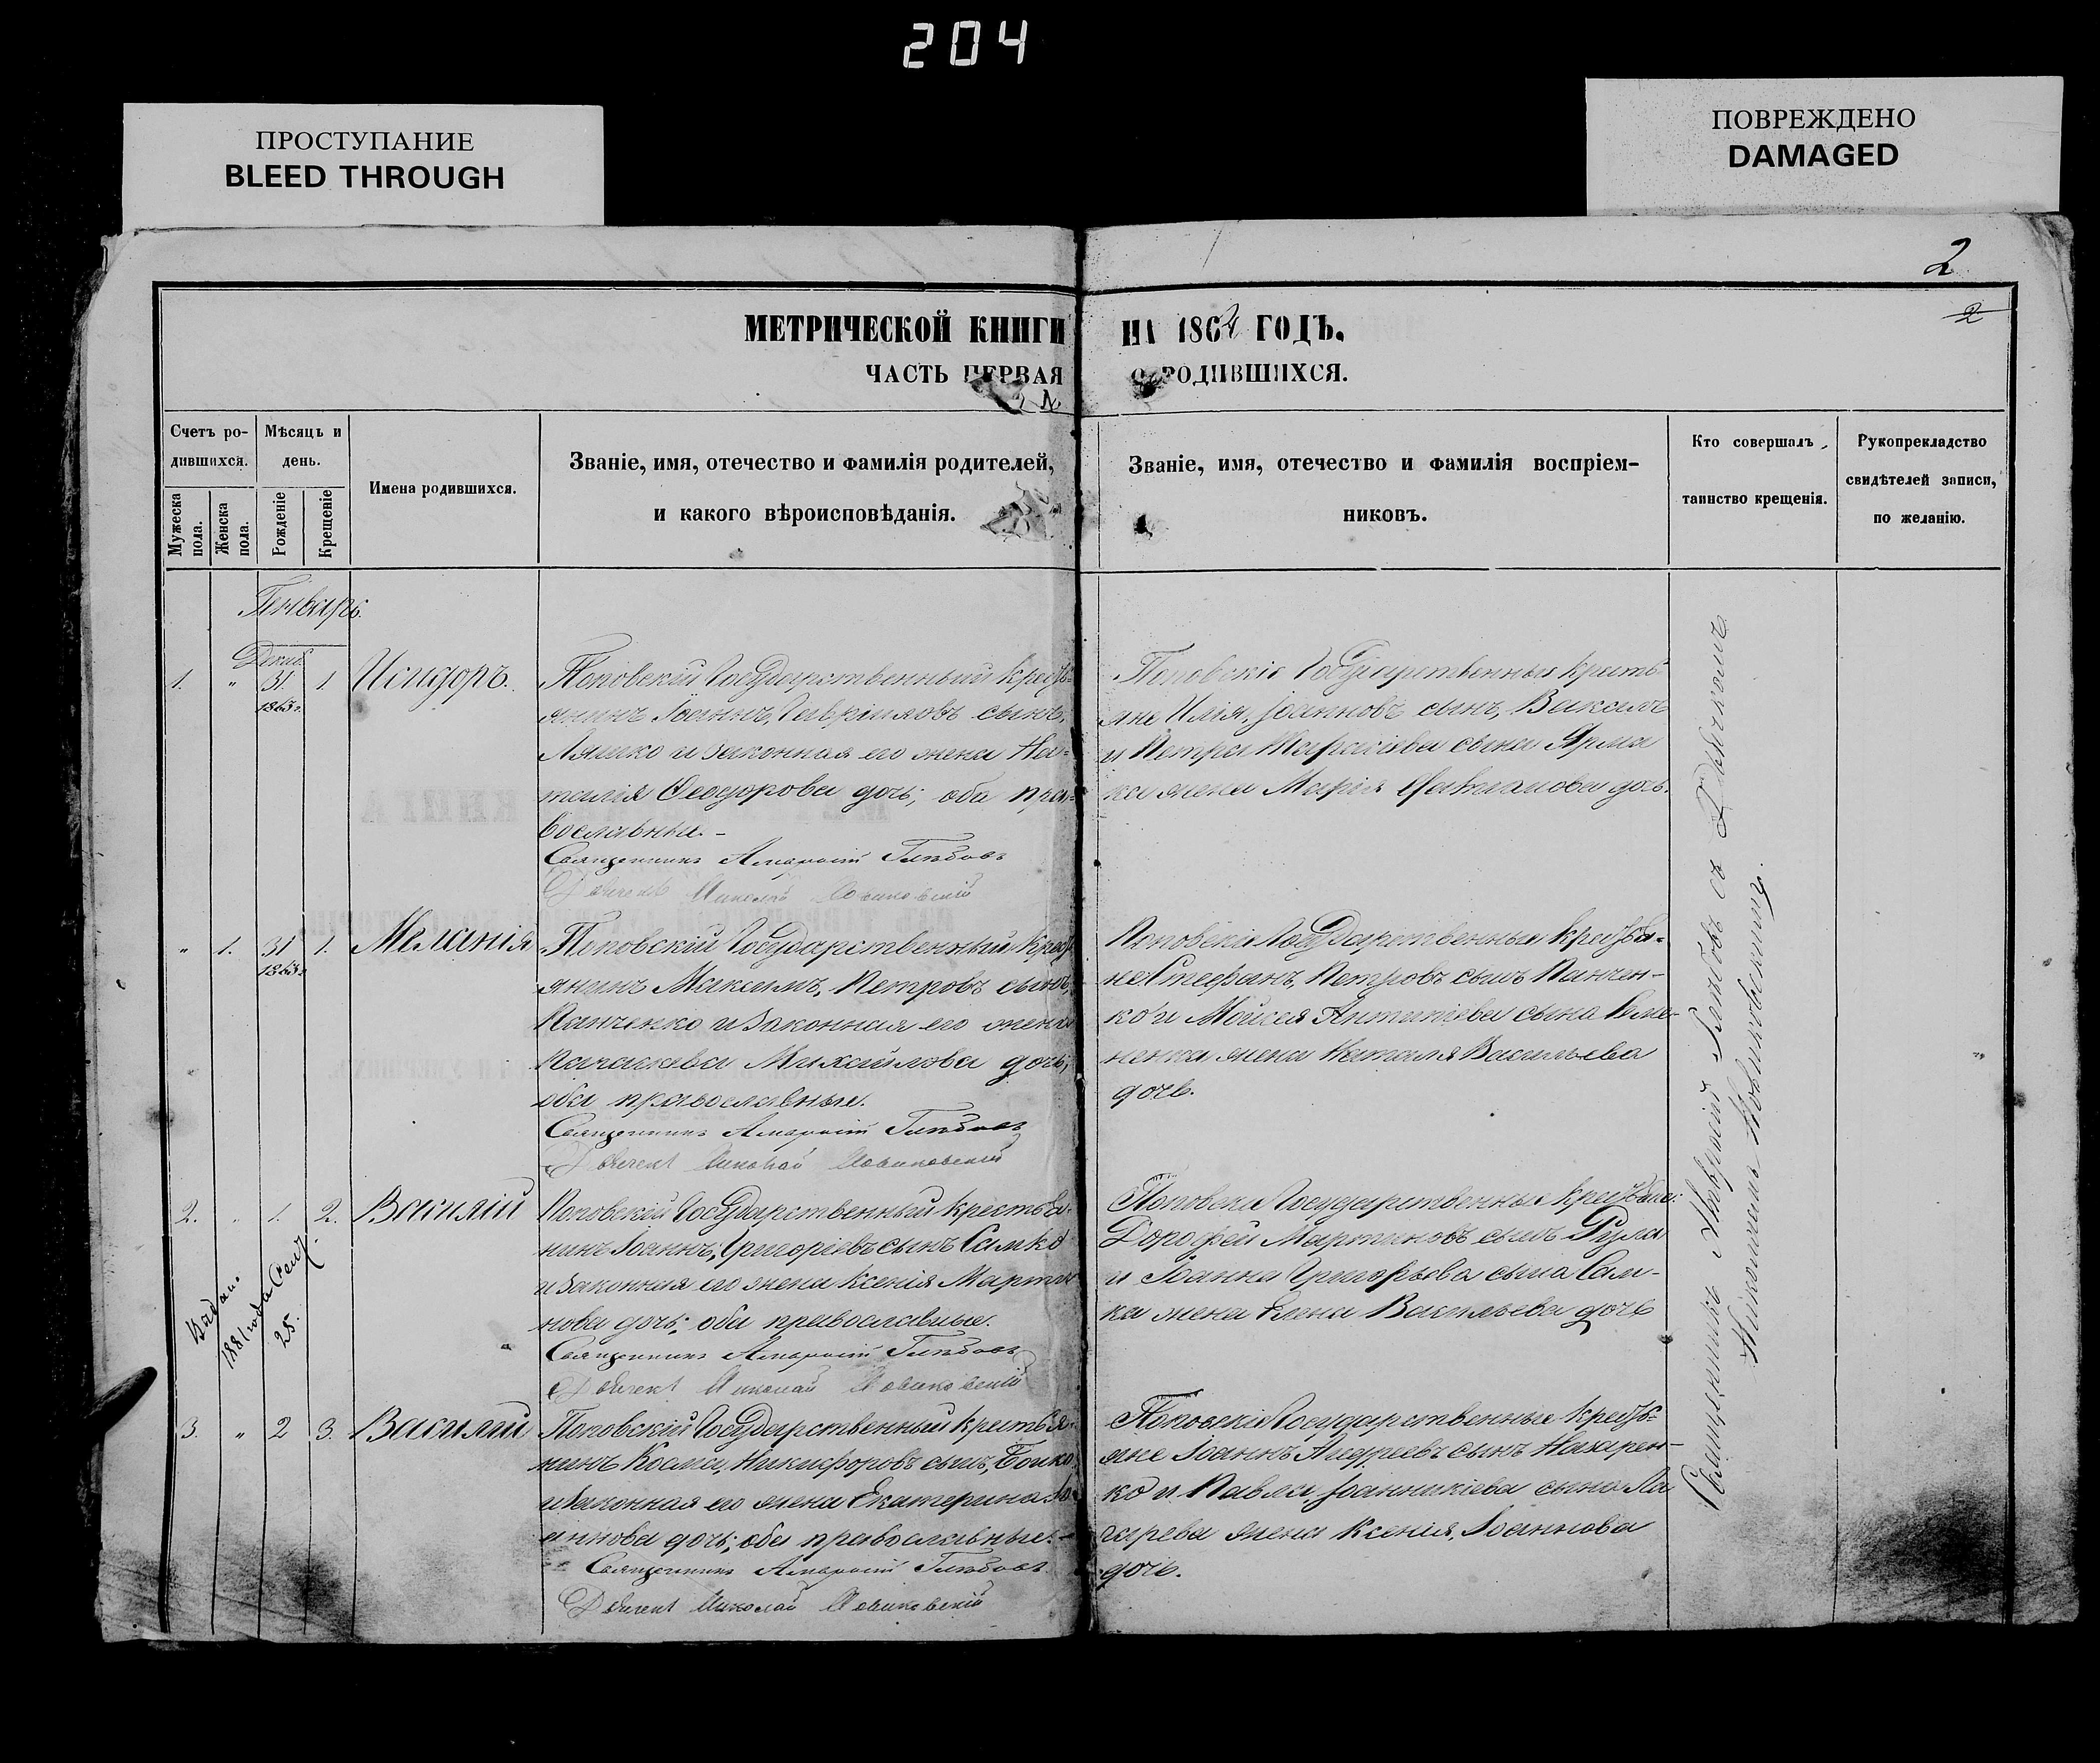 204
ПРОСТУПАНИЕ
BLEED THROUGH
ПОВРЕЖДЕНО
DAMAGED
2
2
МЕТРИЧЕСКОЙ КНИГИ НА 1864 ГОДЪ.
ЧАСТЬ ПЕРВАЯ О РОДИВШИХСЯ.
Счетъ ро-
дившихся.
Мужеска пола.
Женска пола.
Мѣсяцъ и
день.
Рожденіе
Крещеніе
Имена родившихся.
Званіе, имя, отечество и фамилія родителей,
и какого вѣроисповѣданія.
Званіе, имя, отечество и фамилія воспріем-
никовъ.
Кто совершалъ
таинство крещенія.
Рукоприкладство
свидѣтелей записи,
по желанію.
Генварь.
Декаб.
1. " 31. 1. Исидоръ.
1863 г.
Поповскій Государственный кресть-
янинъ Іоаннъ, Гавріиловъ сынъ,
Ляшко и законная его жена На-
талія Ѳеодорова дочь; оба пра-
вославны.-
Священникъ Амвросій Глѣбовъ
Дьячекъ Николай Новиковскій
Поповскіе Государственныя кресть-
яне Илія, Іоанновъ сынъ, Вакалъ
и Петра сына Ярма
ка жена Марія дочь.
" 1. 31 1. Меланія
1863 г.
Поповскій Государственный крест
янинъ Максимъ, Петровъ сынъ,
Панченко и законная его жена
Параскева Михайлова дочь,
оба православные.
Священникъ Амвросій Глѣбовъ
Дьячекъ Николай Новиковскій
Поповскіе Государственные крестья-
не Стефанъ, Петровъ сынъ Панчен-
ко и Мойсея Антипіева сына
жена Наталія Васильева
дочь.
2. " 1. 2. Василій
Выдано
1881 года Сент.
25.
Поповскій Государственный крестья-
нинъ Іоаннъ, Григоріевъ сынъ Самко
и законная его жена Ксенія Марти
нова дочь; оба православные.
Священникъ Амвросій Глѣбовъ
Дьячекъ Николай Новиковскій
Поповскіе Государственные крестьяне:
Дорофей Мартиновъ сынъ
и Іоанна Григорьева сына Сам-
ка жена Елена Васильева дочь
3. " 2 3. Василій
Поповскій Государственный крестья-
нинъ Косма, Никифоровъ сынъ, Бойко
и законная его жена Екатерина Іо
аннова дочь; оба православные.-
Священникъ Амвросій Глѣбовъ
Дьячекъ Николай Новиковскій
Поповскіе Государственные кресть-
яне Іоаннъ Андреевъ сынъ Назарен-
ко и Павла Іоанникіева сына Ла
гарева жена Ксенія, Іоаннова
дочь.
Священникъ Амвросій Глѣбовъ съ Дьячкомъ
Николаемъ Новиковскимъ.